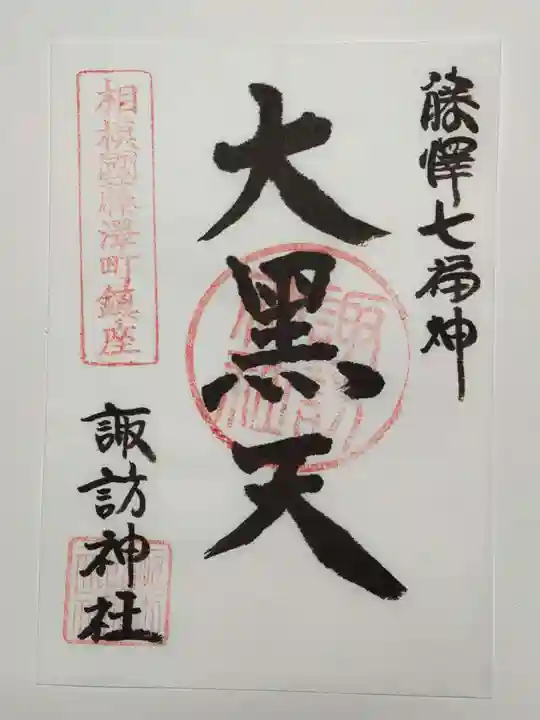 藤澤七福神
大黒天
相模國藤澤町鎮座
諏訪神社